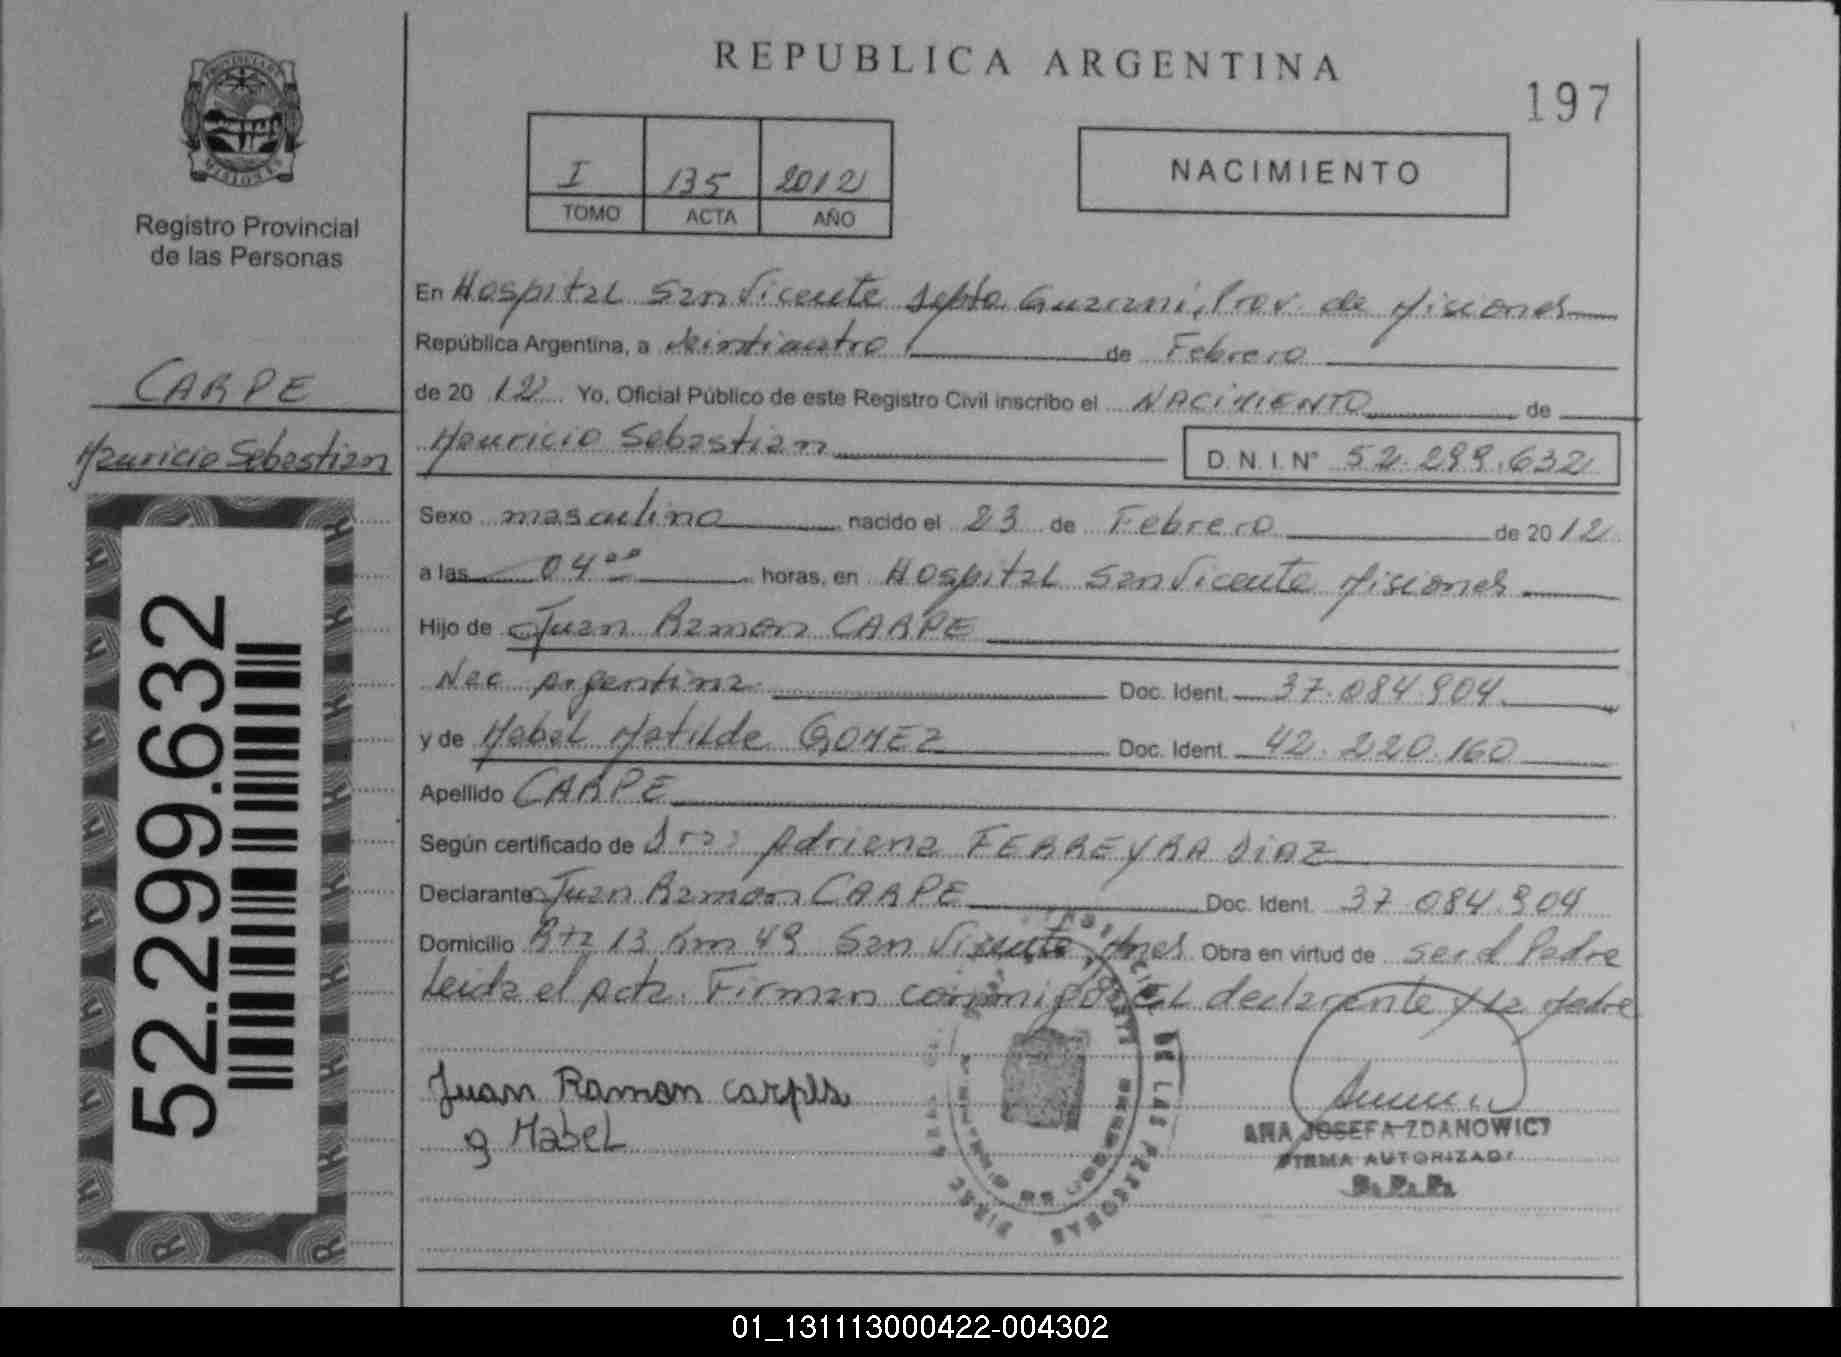 REPUBLICA ARGENTINA
197
I 135 2012
TOMO ACTA AÑO
NACIMIENTO
Registro Provincial
de las Personas
CARPE
Mauricio Sebastian
52.299.632
En Hospital San Vicente Depto Guarani, Prov. de Misiones
República Argentina, a Veinticuatro de Febrero
de 2012 Yo, Oficial Público de este Registro Civil inscribo el NACIMIENTO de
Mauricio Sebastian D.N.I. N° 52.299.632
Sexo masculino nacido el 23 de Febrero de 2012
a las 04 ºº horas, en Hospital San Vicente Misiones
Hijo de Juan Ramon CARPE
Nac Argentina Doc. Ident. 37.084.904
y de Mabel Matilde GOMEZ Doc. Ident. 42.220.160
Apellido CARPE
Según certificado de Dra: Adriana FERREYRA DIAZ
Declarante Juan Ramon CARPE Doc. Ident. 37.084.904
Domicilio Rta 13 Km 49 San Vicente, Mnes Obra en virtud de ser el Padre
Leida el Acta. Firman conmigo EL declarante y La Madre
Juan Ramon
g MabeL
DE LAS PERSONAS
ANA JOSEFA ZDANOWICZ
FIRMA AUTORIZADA
R. P. P.
01_131113000422-004302